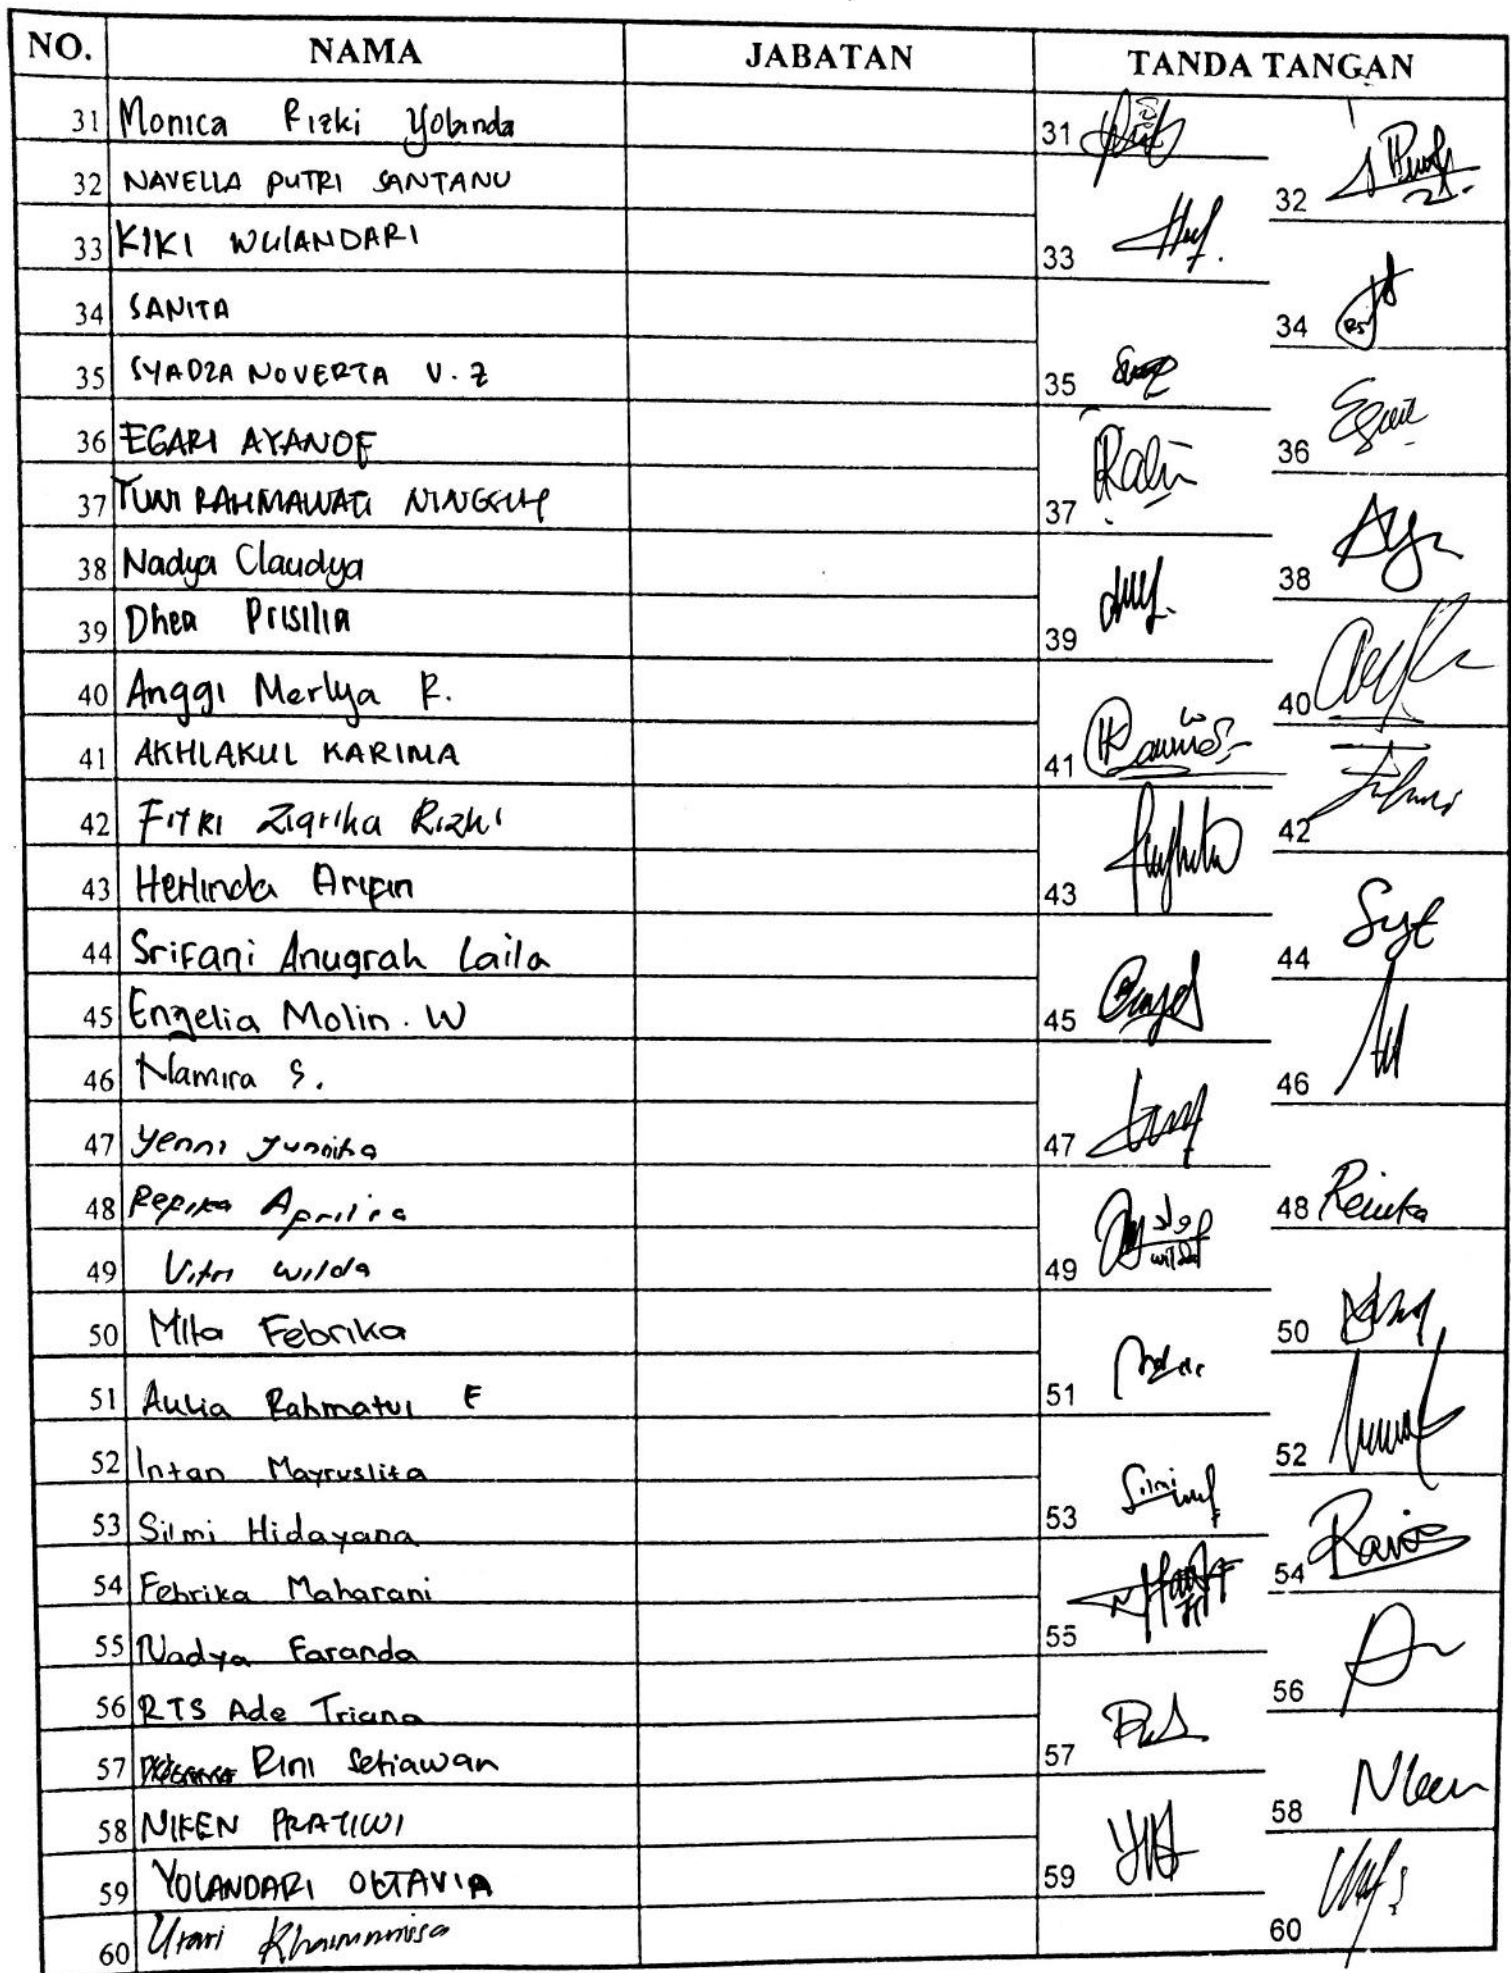 NO. NAMA JABATAN TANDA TANGAN
31 Monica Rizki Yolanda 31
32 NAVELLA PUTRI SANTANU 32
33 KIKI WULANDARI 33
34 SANITA 34
35 SYADZA NOVERTA V.Z 35
36 EGARI AYANOF 36
37 RAHMAWATI 37
38 Nadya Claudya 38
39 Dhea Prisilia 39
40 Anggi Merlya R. 40
41 AKHLAKUL KARIMA 41
42 Fitri Ziqrika Rizki 42
43 Herlinda Aripin 43
44 Srifani Anugrah Laila 44
45 Engelia Molin. W 45
46 Namira S. 46
47 Yenni Yunnika 47
48 Repika Aprilia 48
49 Vitri Wilda 49
50 Mita Febrika 50
51 Aulia Rahmatul F 51
52 Intan Mayruslita 52
53 Silmi Hidayana 53 Silmi
54 Febrika Maharani 54
55 Nadya Faranda 55
56 RTS Ade Triana 56
57 Rini Setiawan 57
58 NIKEN PRATIWI 58
59 YOLANDARI OKTAVIA 59
60 Utari Khairunnisa 60